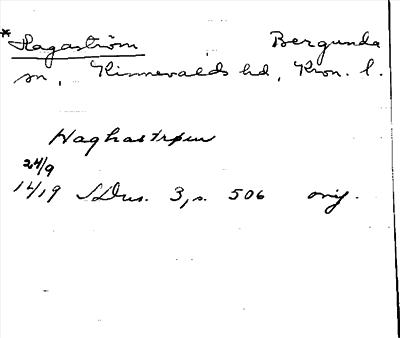 *Hagaström Bergunda
sn, Kinnevalds hd, Kron. l.
Haghastrøm
24/9
1419 SDns. 3, s. 506 orig.